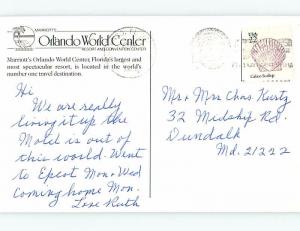 MARRIOTT'S
Orlando World Center
RESORT AND CONVENTION CENTER
Marriott's Orlando World Center, Florida's largest and
most spectacular resort, is located in the world's
number one travel destination.
Hi
We are really
living it up the
Motel is out of
this world. Went
to Epcot Mon & Wed
Coming home Mon.
Love Ruth
USA
22
Calico Scallop
Mr & Mrs Chas. Kurtz
32 Midship Rd.
Dundalk
Md. 21222